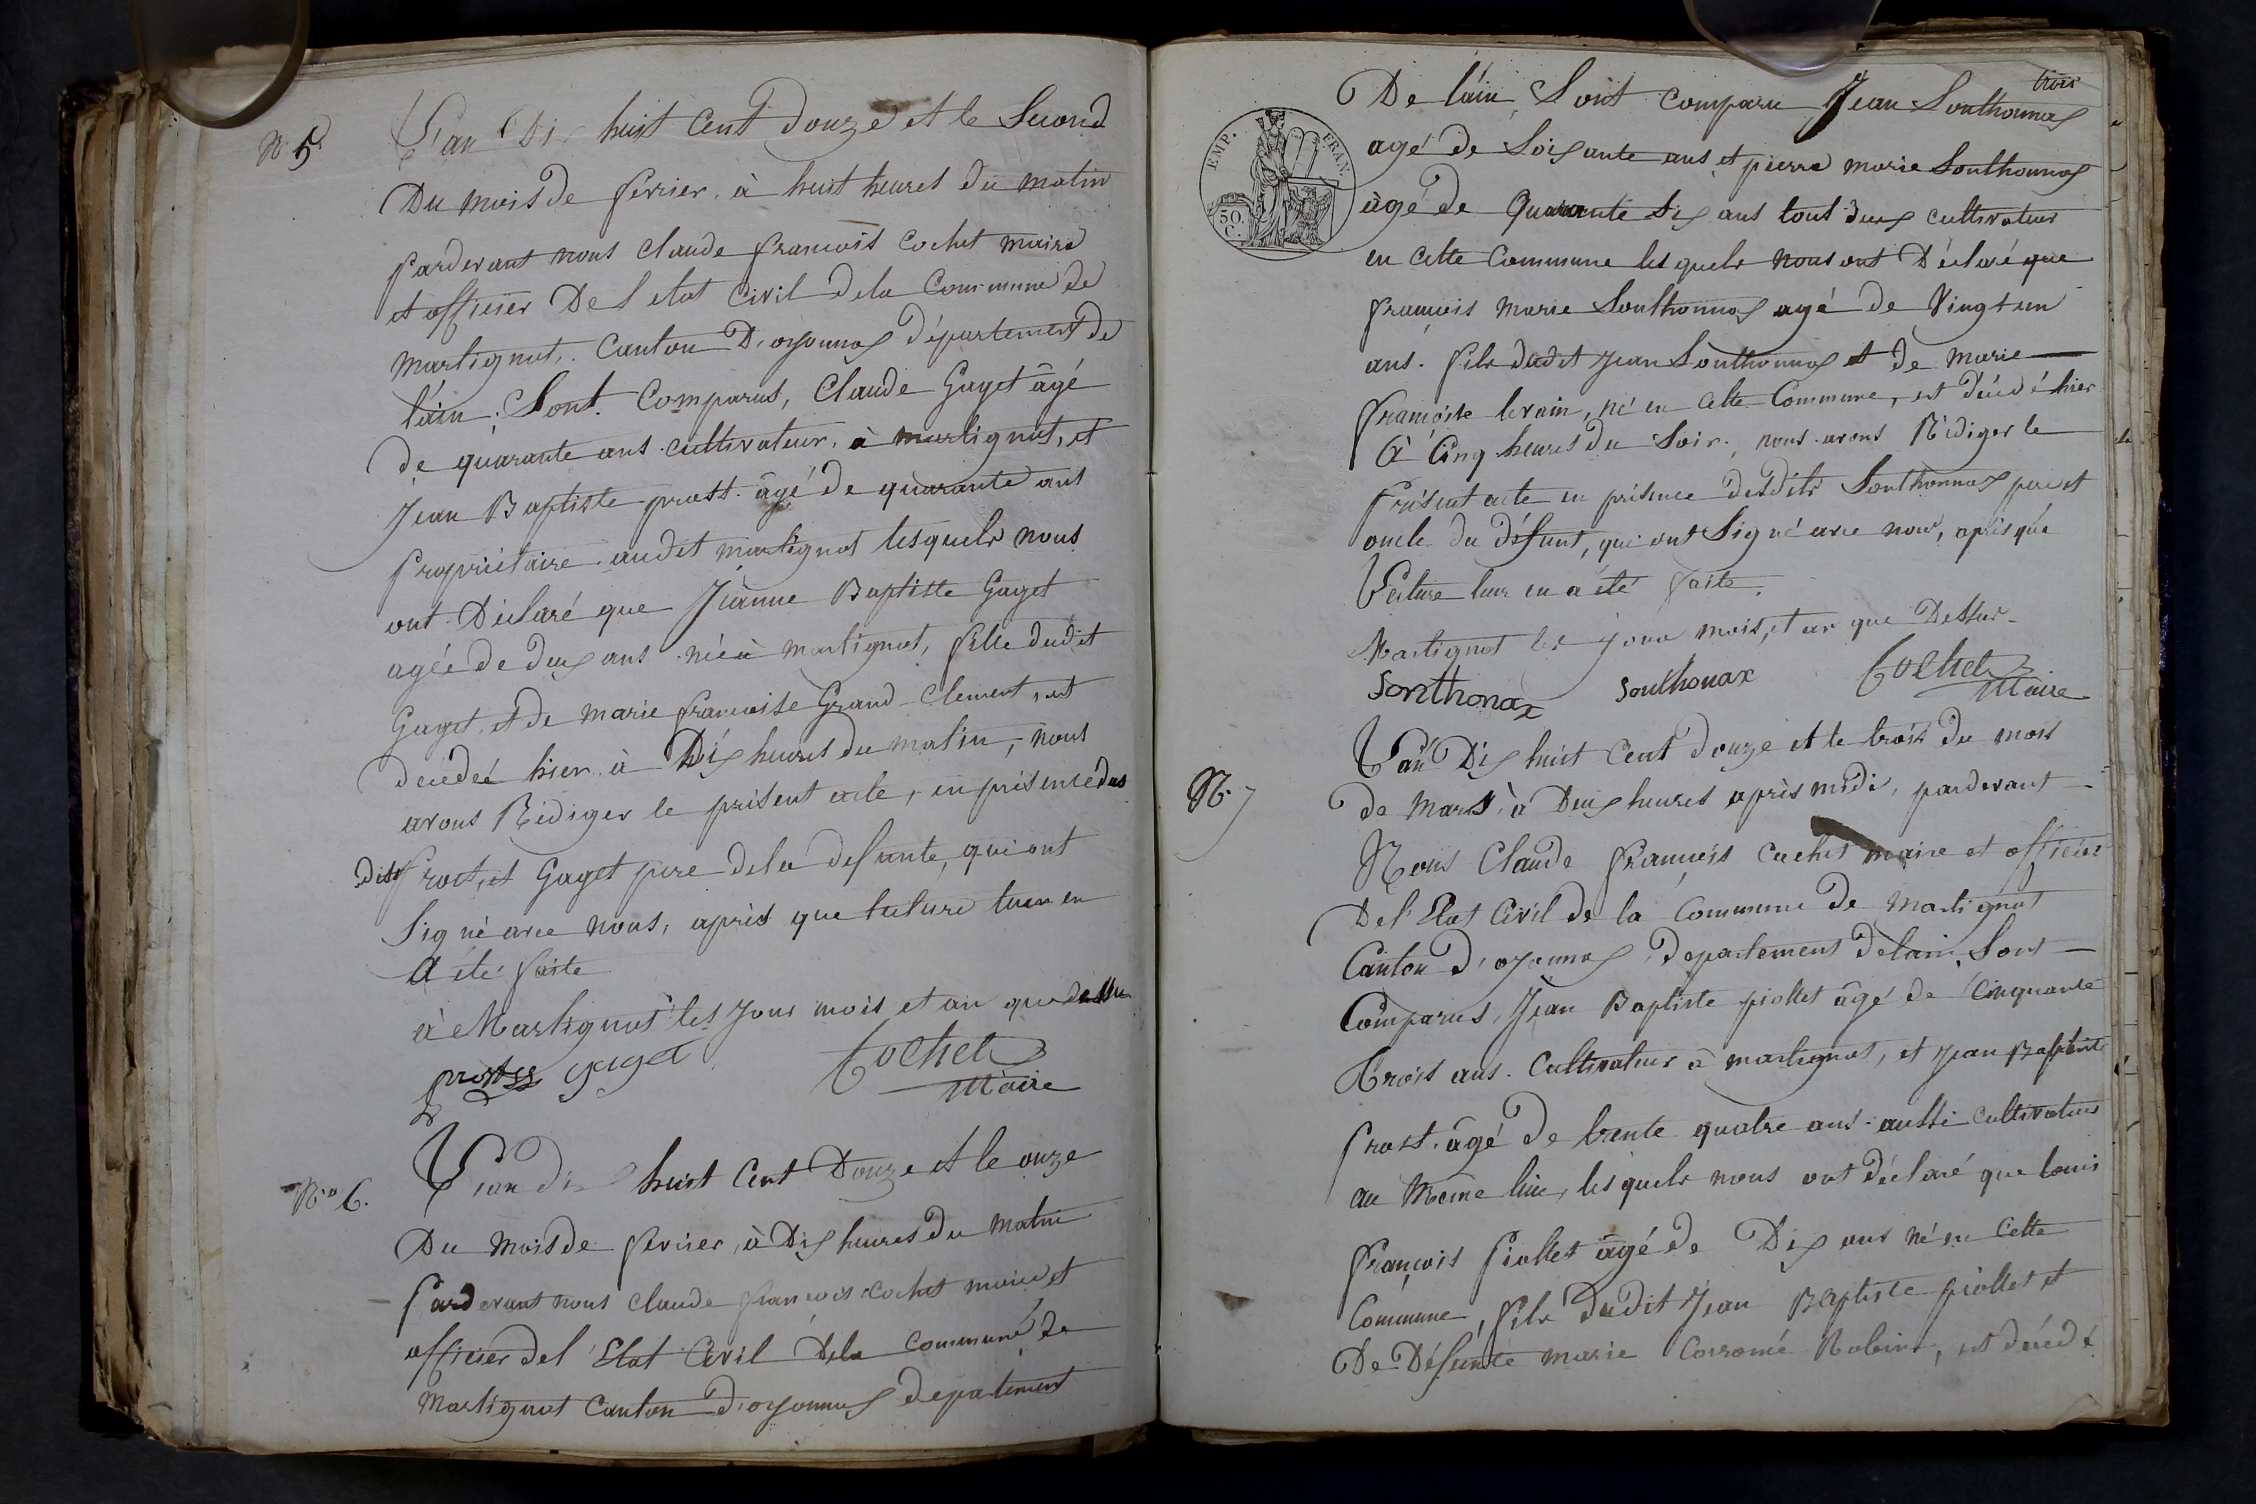 N° 5.
L'an Dix huit Cent Douze et le Second
Du mois de fevrier, à huit heures du matin
pardevant nous Claude francois Cochet maire
et officier De l'etat Civil de la Commune de
Martignat, Canton D'oyonnax département de
l'ain, Sont Comparus, Claude Gaget âgé
de quarante ans cultivateur, à martignat, et
Jean Baptiste prost âgé de quarante ans
propriétaire audit martignat lesquels nous
ont Déclaré que Jeanne Baptiste Gaget
agée de deux ans née à martignat, fille dudit
Gaget, et de marie francoise Grand-Clement, est
decedeé hier à Dix heures du matin, nous
avons Rédiger le présent acte, en présence des
dits prost, et Gaget pere de la defunte, qui ont
Signé avec nous, après que lecture leur en
a été faite
à Martignat les Jour mois et an que dessu
prost gaget Cochet
Maire
N° 6.
L'an dix huit Cent Douze et le onze
Du mois de fevrier, à Dix heures du Matin
Pardevant nous Claude francois Cochet maire et
officier del'Etat Civil Dela commune de
Martignat Canton d'oyonnax departement
trois
EMP. FRAN.
50.
C.
De l'ain, Sont comparu Jean Sonthonnax
agé de Soixante ans et pierre marie Sonthonnax
âgé de Quarante Six ans tout deux cultivateur
en cette Commune lesquels nous ont Déclaré que
françois marie Sonthonnax agé de Vingt un
ans. fils dudit Jean Sonthonnax et de marie
françoise levrain, né en cette Commune, est décédé hier
à Cinq heures du Soir, nous avons Rédiger le
présent acte en présence desdits Sonthonnax pere et
oncle du défunt, qui ont Signé avec nous, après que
Lecture leur en a été faite,
Martignat les jour mois, et an que Dessus
Sonthonax Sonthonax Cochet
Maire
N° 7
L'an Dix huit Cent douze et le trois du mois
de Mars, à Deux heures après midi, pardevant
Nous Claude françois Cochet maire et officier
Del'Etat Civil de la Commune de Martignat
Canton d'oyonnax, departement delain, Sont
Comparus, Jean Baptiste piollet âgé de Cinquante
trois ans. Cultivateur à martignat, et Jean Baptiste
prost. âgé de trente quatre ans aussi cultivateur
au même lieu, lesquels nous ont déclaré que louis
françois piollet âgé de Dix ans né en Cette
Commune, fils dudit Jean Baptiste piollet et
De Défunte marie Robin, est décédé